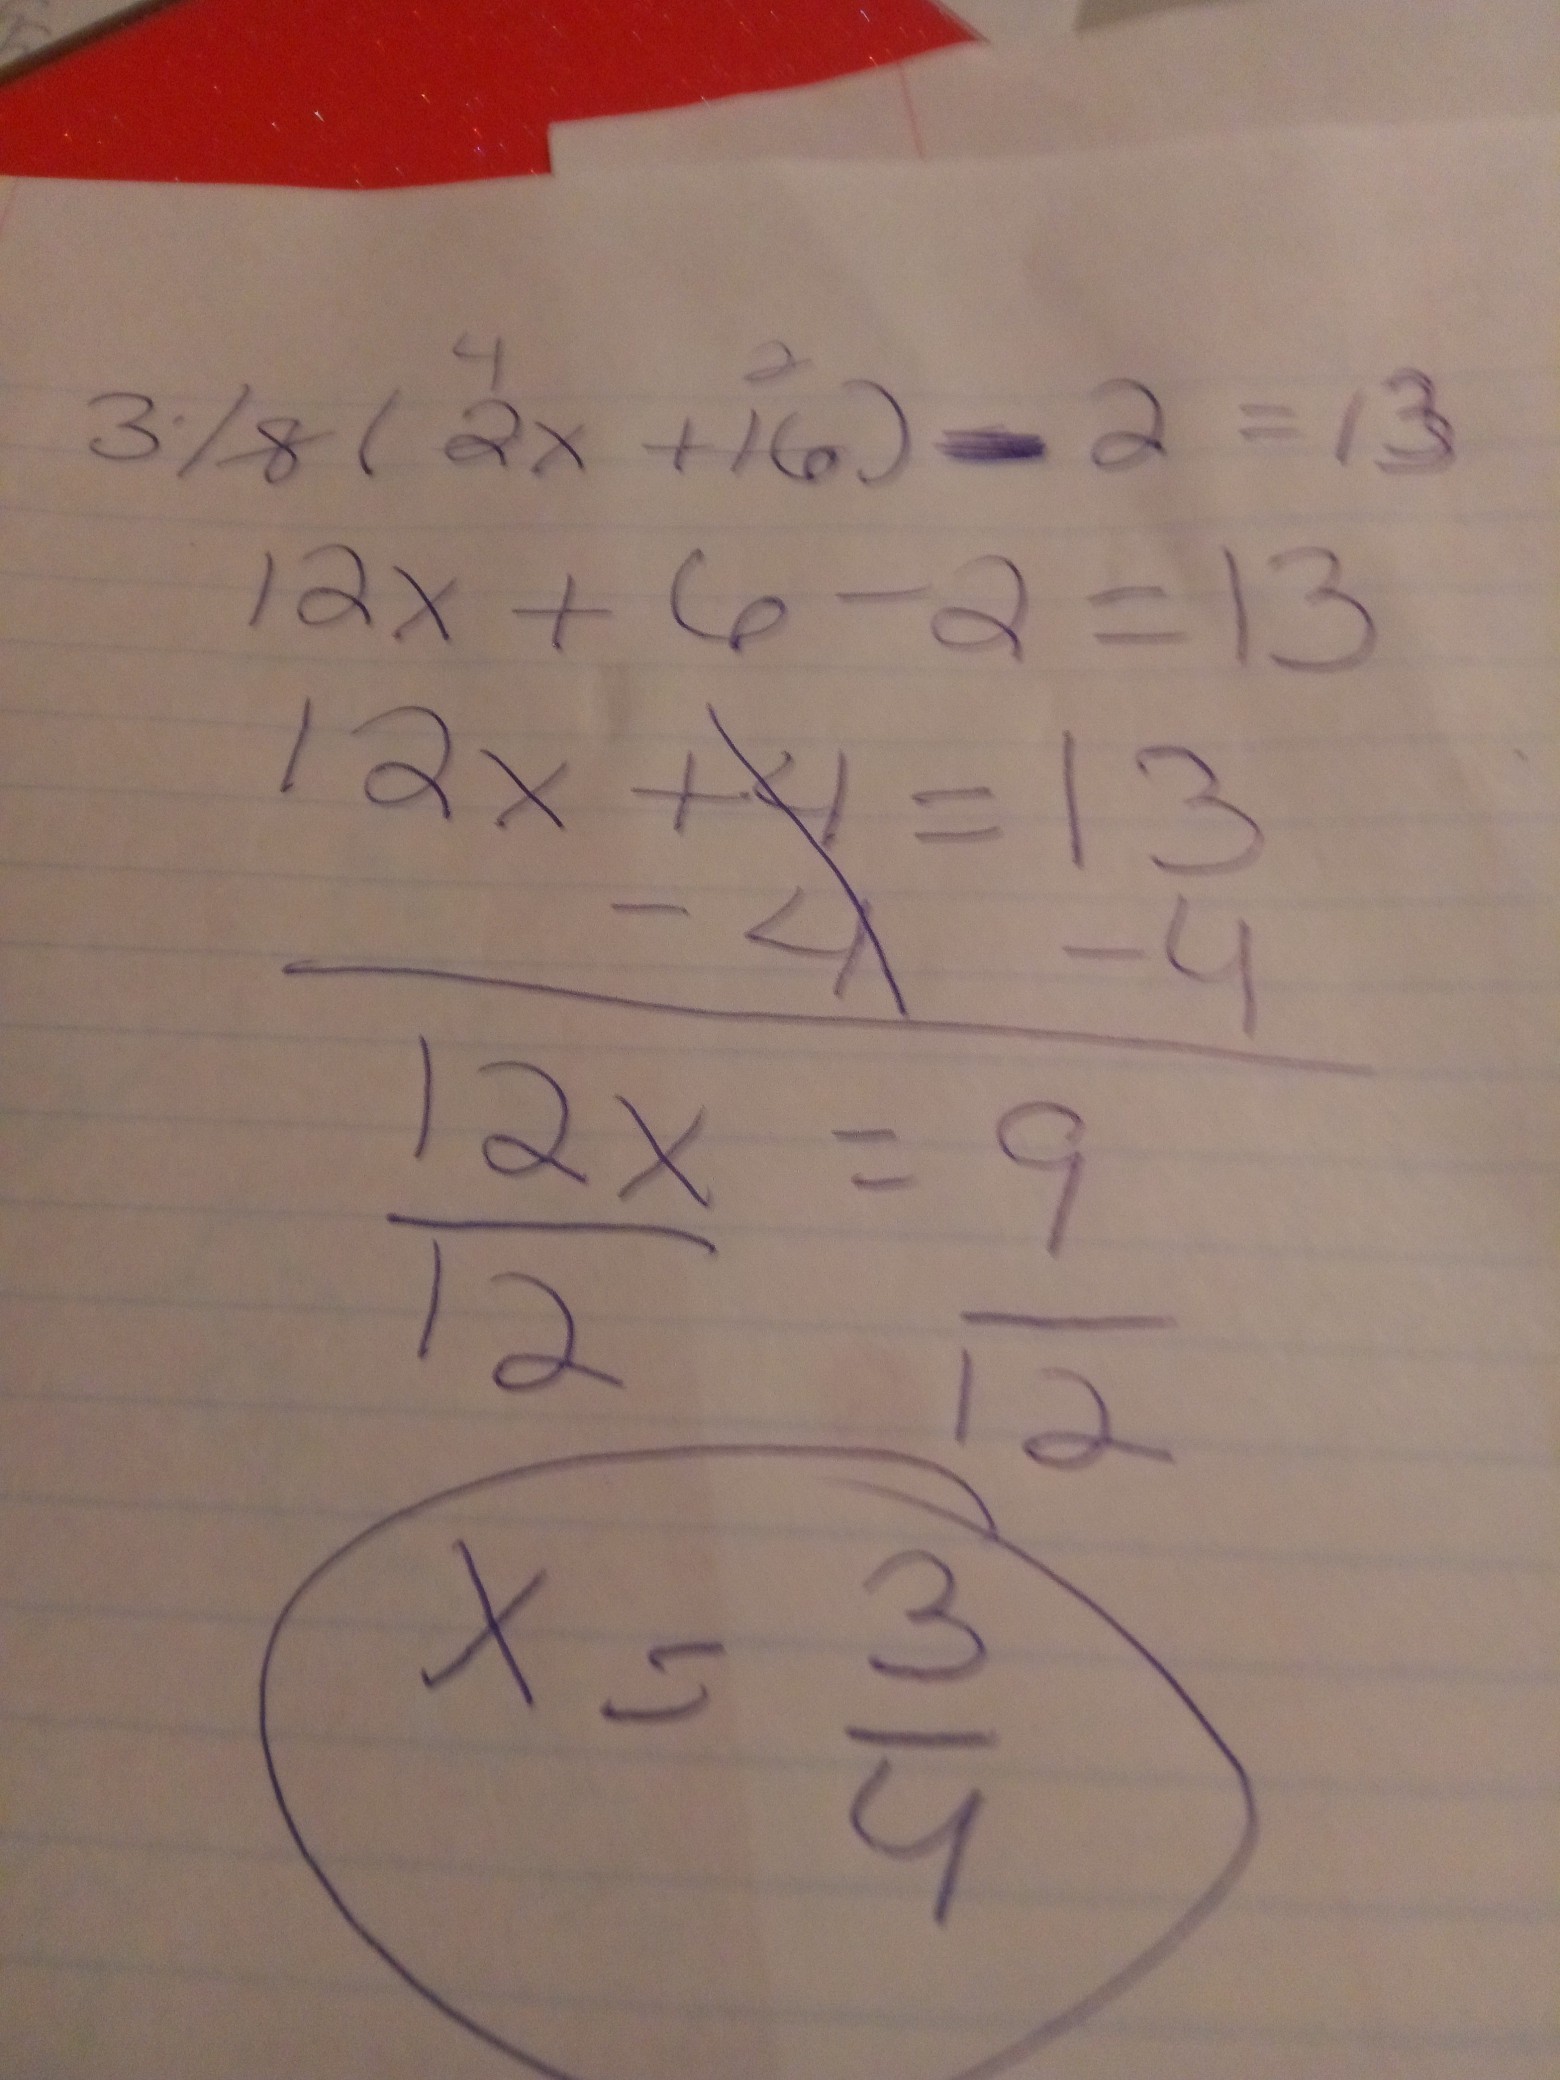 4 2
3/8 (2x + 16) - 2 = 13
12x + 6 - 2 = 13
12x + 4 = 13
- 4 - 4
12x = 9
12 12
x = 3
4